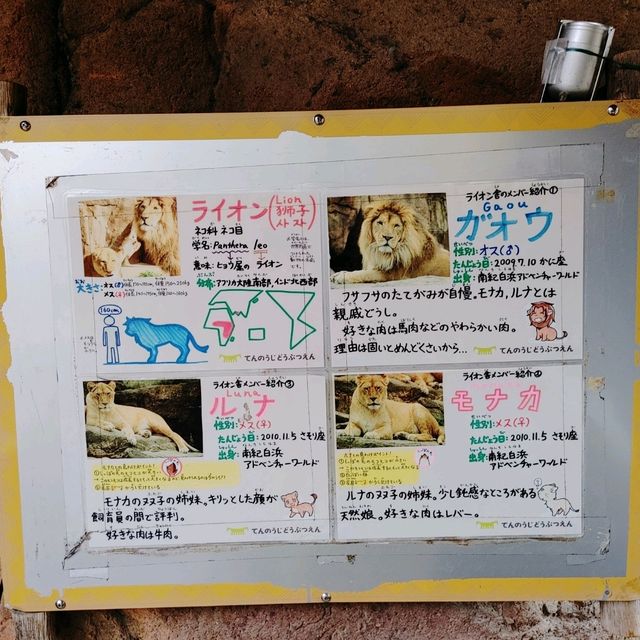 ライオン
Lion
獅子
ネコ科 ネコ目
学名: Panthera leo
意味: ヒョウ属の ライオン
分布: アフリカ大陸南部、インド北西部
大きさ: オス(♂)
メス(♀)
160cm
てんのうじどうぶつえん
ライオン舎のメンバー紹介①
Gaou
ガオウ
性別: オス(♂)
たんじょう日: 2009.7.10 かに座
出身: 南紀白浜アドベンチャーワールド
フサフサのたてがみが自慢。モナカ、ルナとは
親戚どうし。
好きな肉は馬肉などのやわらかい肉。
理由は固いとめんどくさいから…
てんのうじどうぶつえん
ライオン舎メンバー紹介③
Luna
ルナ
性別: メス(♀)
たんじょう日: 2010.11.5 さそり座
出身: 南紀白浜
アドベンチャーワールド
モナカのヌヌ子の姉妹。キリッとした顔が
飼育員の間で評判。
好きな肉は牛肉。
てんのうじどうぶつえん
ライオン舎のメンバー紹介②
モナカ
性別: メス(♀)
たんじょう日: 2010.11.5 さそり座
出身: 南紀白浜
アドベンチャーワールド
ルナのヌヌ子の姉妹。少し鈍感なところがある
天然娘。好きな肉はレバー。
てんのうじどうぶつえん